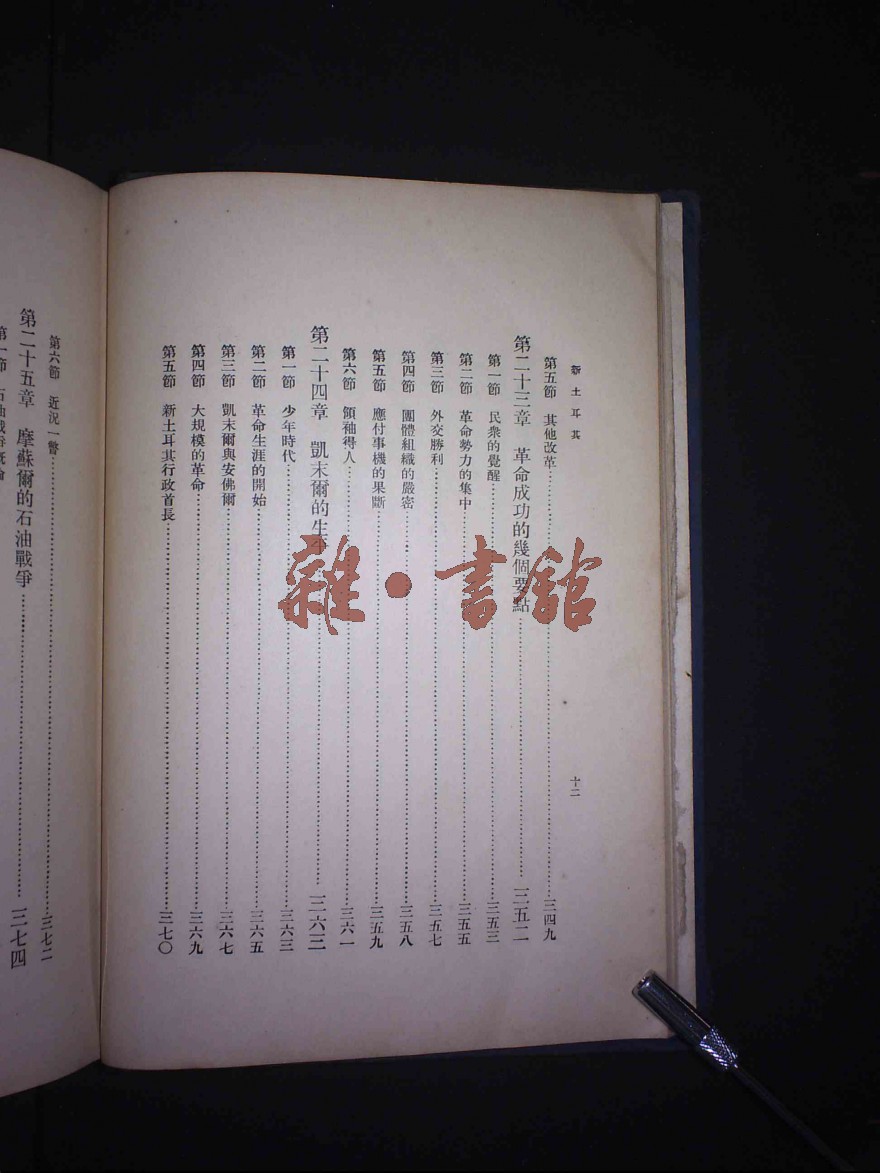 新土耳其
十二
第五節 其他改革…………三四九
第二十三章 革命成功的幾個要點…………三五二
第一節 民衆的覺醒…………三五三
第二節 革命勢力的集中…………三五五
第三節 外交勝利…………三五七
第四節 團體組織的嚴密…………三五八
第五節 應付事機的果斷…………三五九
第六節 領袖得人…………三六一
第二十四章 凱末爾的生平…………三六三
第一節 少年時代…………三六三
第二節 革命生涯的開始…………三六五
第三節 凱末爾與安佛爾…………三六七
第四節 大規模的革命…………三六九
第五節 新土耳其行政首長…………三七〇
第六節 近況一瞥…………三七二
第二十五章 摩蘇爾的石油戰爭…………三七四
雜·書館